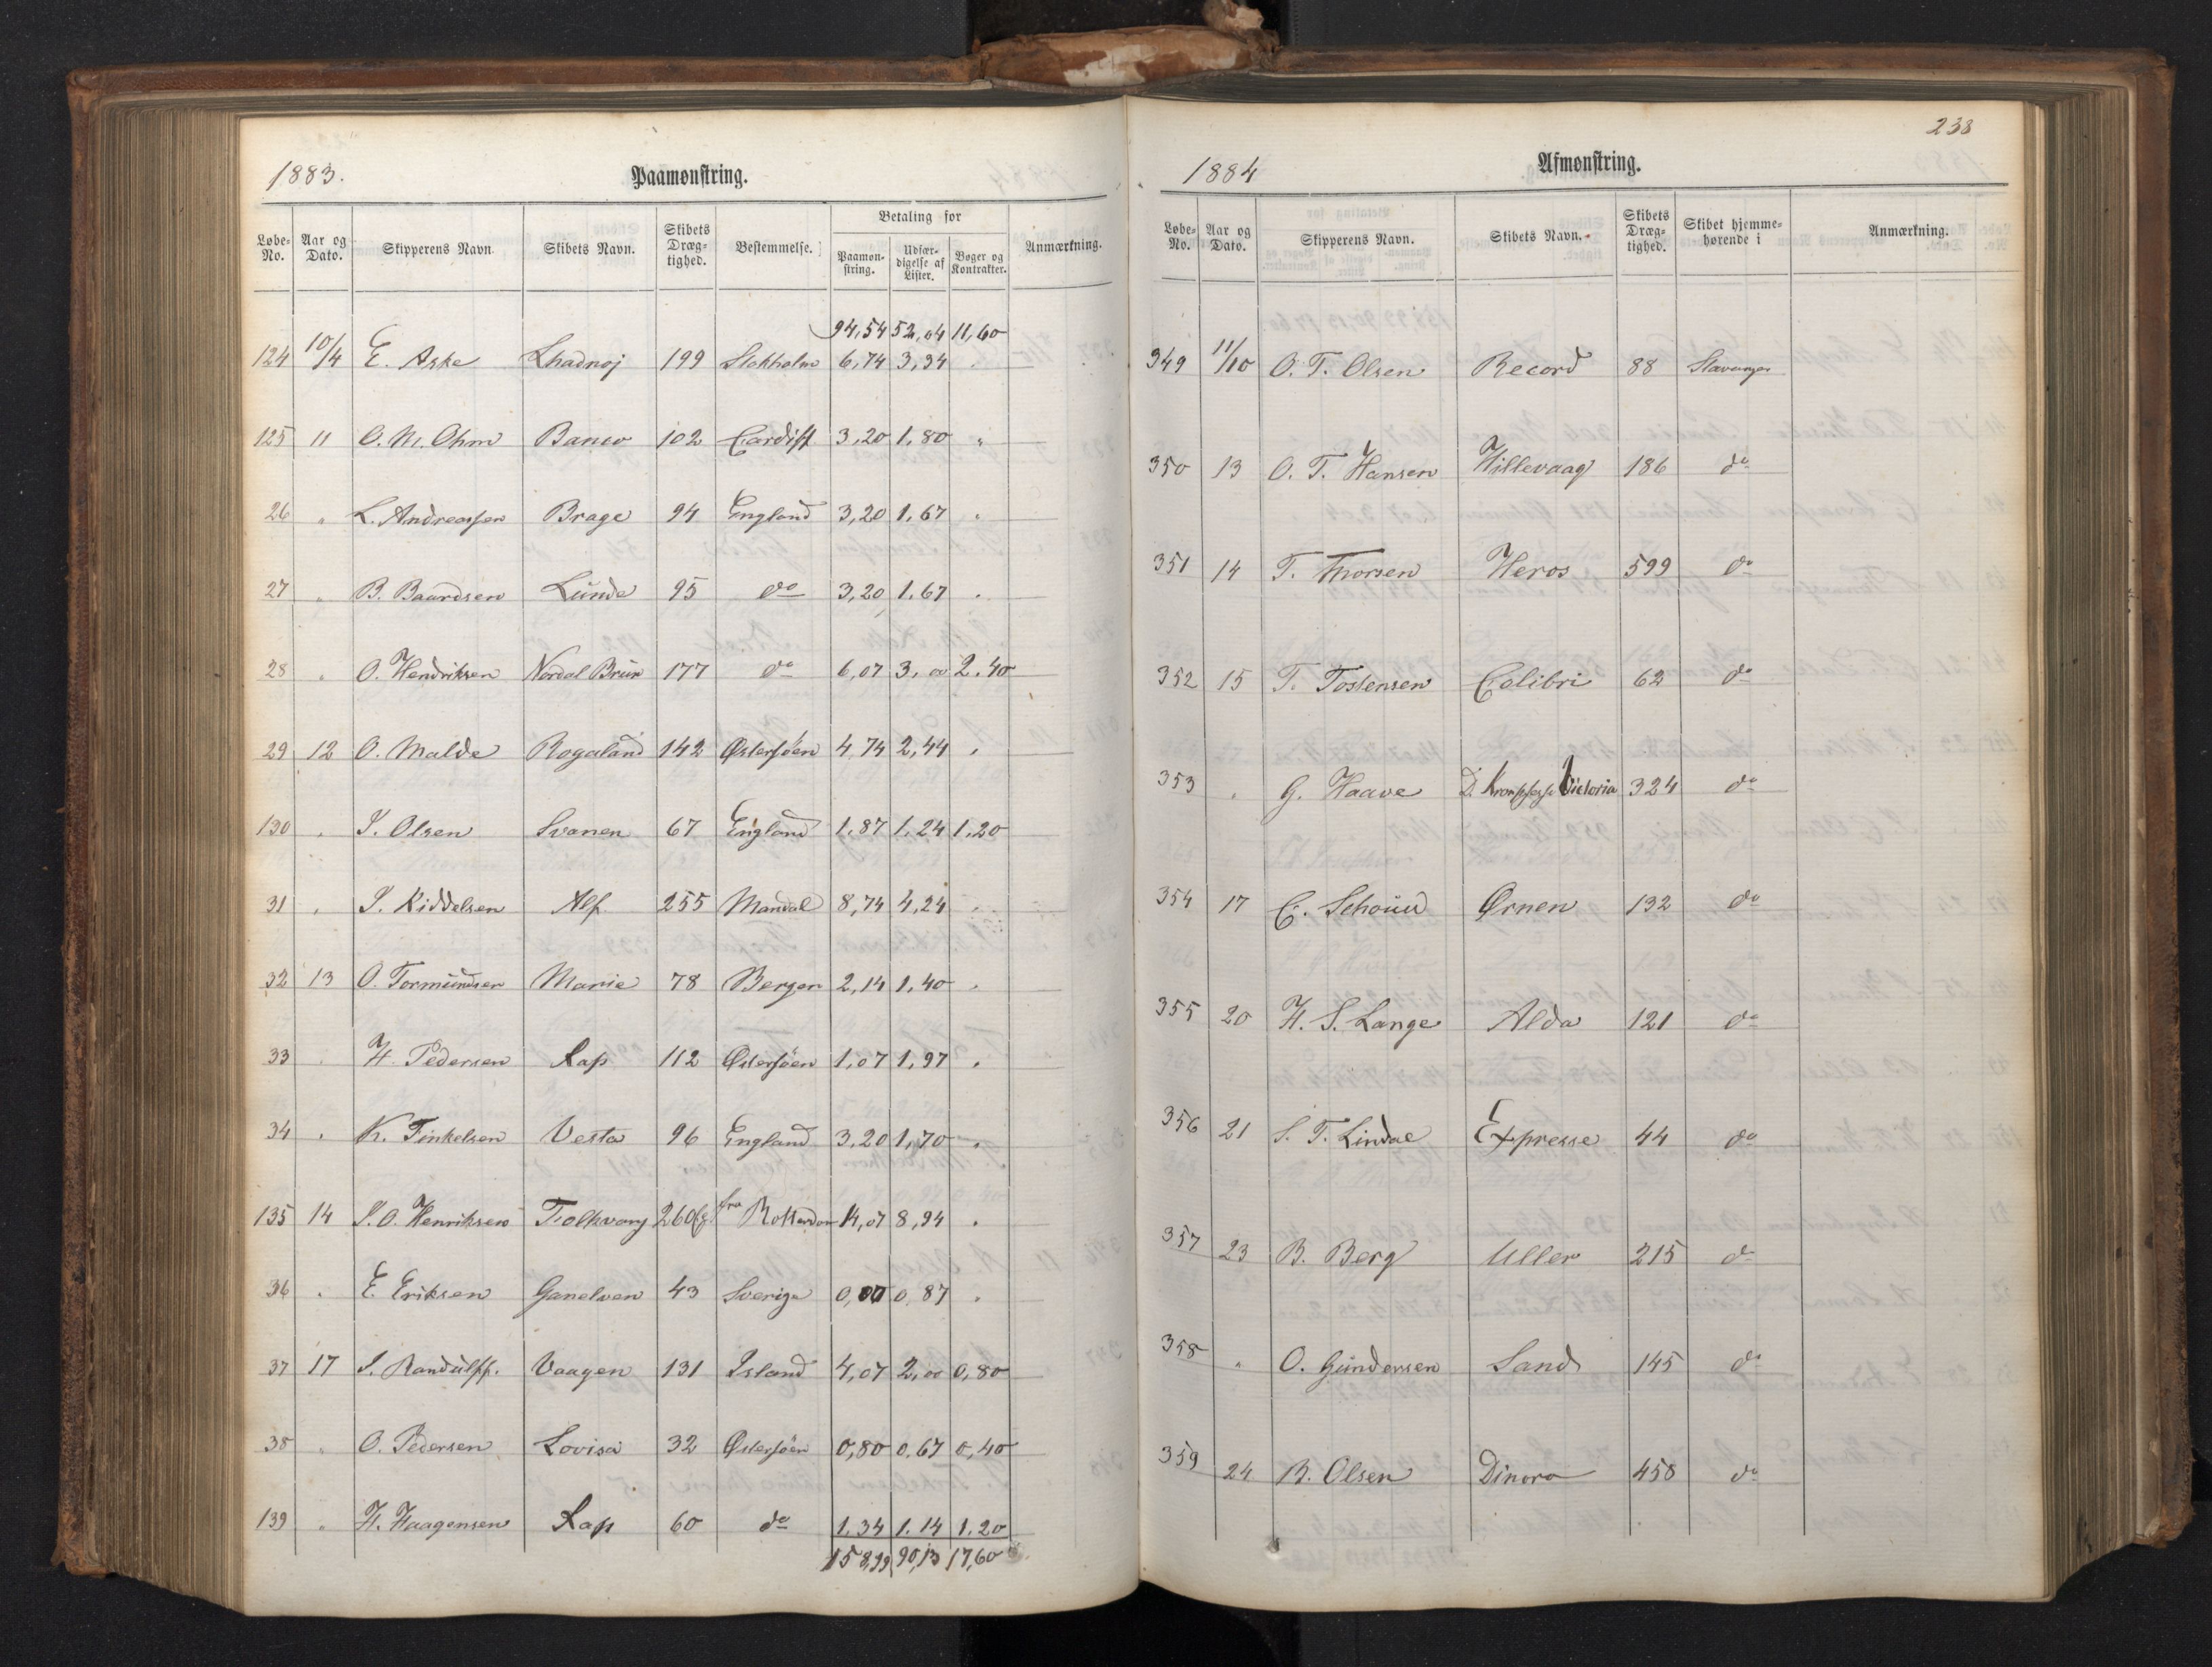 1883.
Paamønstring.
Løbe-No. Aar og Dato. Skipperens Navn Skibets Navn. Skibets Dræg-tighed. Bestemmelse. Betaling for Paamøn-string. Udfær-digelse af Lister. Bøger og Kontrakter. Anmærkning.
94,54 52,04 11,60
124 10/4 E. Aske 199 Stokholm 6,74 3,34
125 11 O. M. Ohm Banco 102 Cardiff 3,20 1,80 "
26 " L. Andreassen Brage 94 England 3,20 1,67 "
27 " B. Baardsen Lunde 95 do 3,20 1.67 "
28 " O. Hendriksen Nordal Brun 177 do 6,07 3,00 2.40
29 12 O. Malde Rogaland 142 Østersøen 4,74 2,44 "
130 " J. Olsen Svanen 67 England 1,87 1,24 1,20
31 " J. Kiddelsen Alf 255 Mandal 8,74 4,24 "
32 13 O. Tormundsen Marie 78 Bergen 2,14 1,40 "
33 " H. Pedersen Rap 112 Østersøen 1,07 1,97 "
34 " K. Tinkelsen Vesta 96 England 3,20 1,70 "
135 14 J. O. Henriksen Tolkvang 260 fra Rotterdam 14,07 8,94 "
36 " E. Eriksen Ganelven 43 Sverige 0, 0,87 "
37 17 J. Randulff. Vaagen 131 Island 4,07 2,00 0,80
38 " O. Pedersen Lovisa 32 Østersøen 0,80 0,67 0,40
139 " H. Haagensen Rap 60 do 1.34 1.14 1.20
158,99 90,13 17,60
238
1884
Afmønstring.
Løbe-No. Aar og Dato. Skipperens Navn. Skibets Navn. Skibets Dræg-tighed. Skibet hjemme-hørende i Anmærkning.
349 11/10 O. T. Olsen Record 88 Stavanger
350 13 O. T. Hansen Hillevaag 186 do
351 14 T. Thorsen Heros 599 do
352 15 T. Tostensen Colibri 62 do
353 " G. Haave Victoria 324 do
354 17 C. Ørnen 132 do
355 20 H. S. Lange Alda 121 do
356 21 S. T. Lindae Expresse 44 do
357 23 B. Berg Uller 215 do
358 " O. Gundersen Sand 145 do
359 24 B. Olsen Dinora 458 do